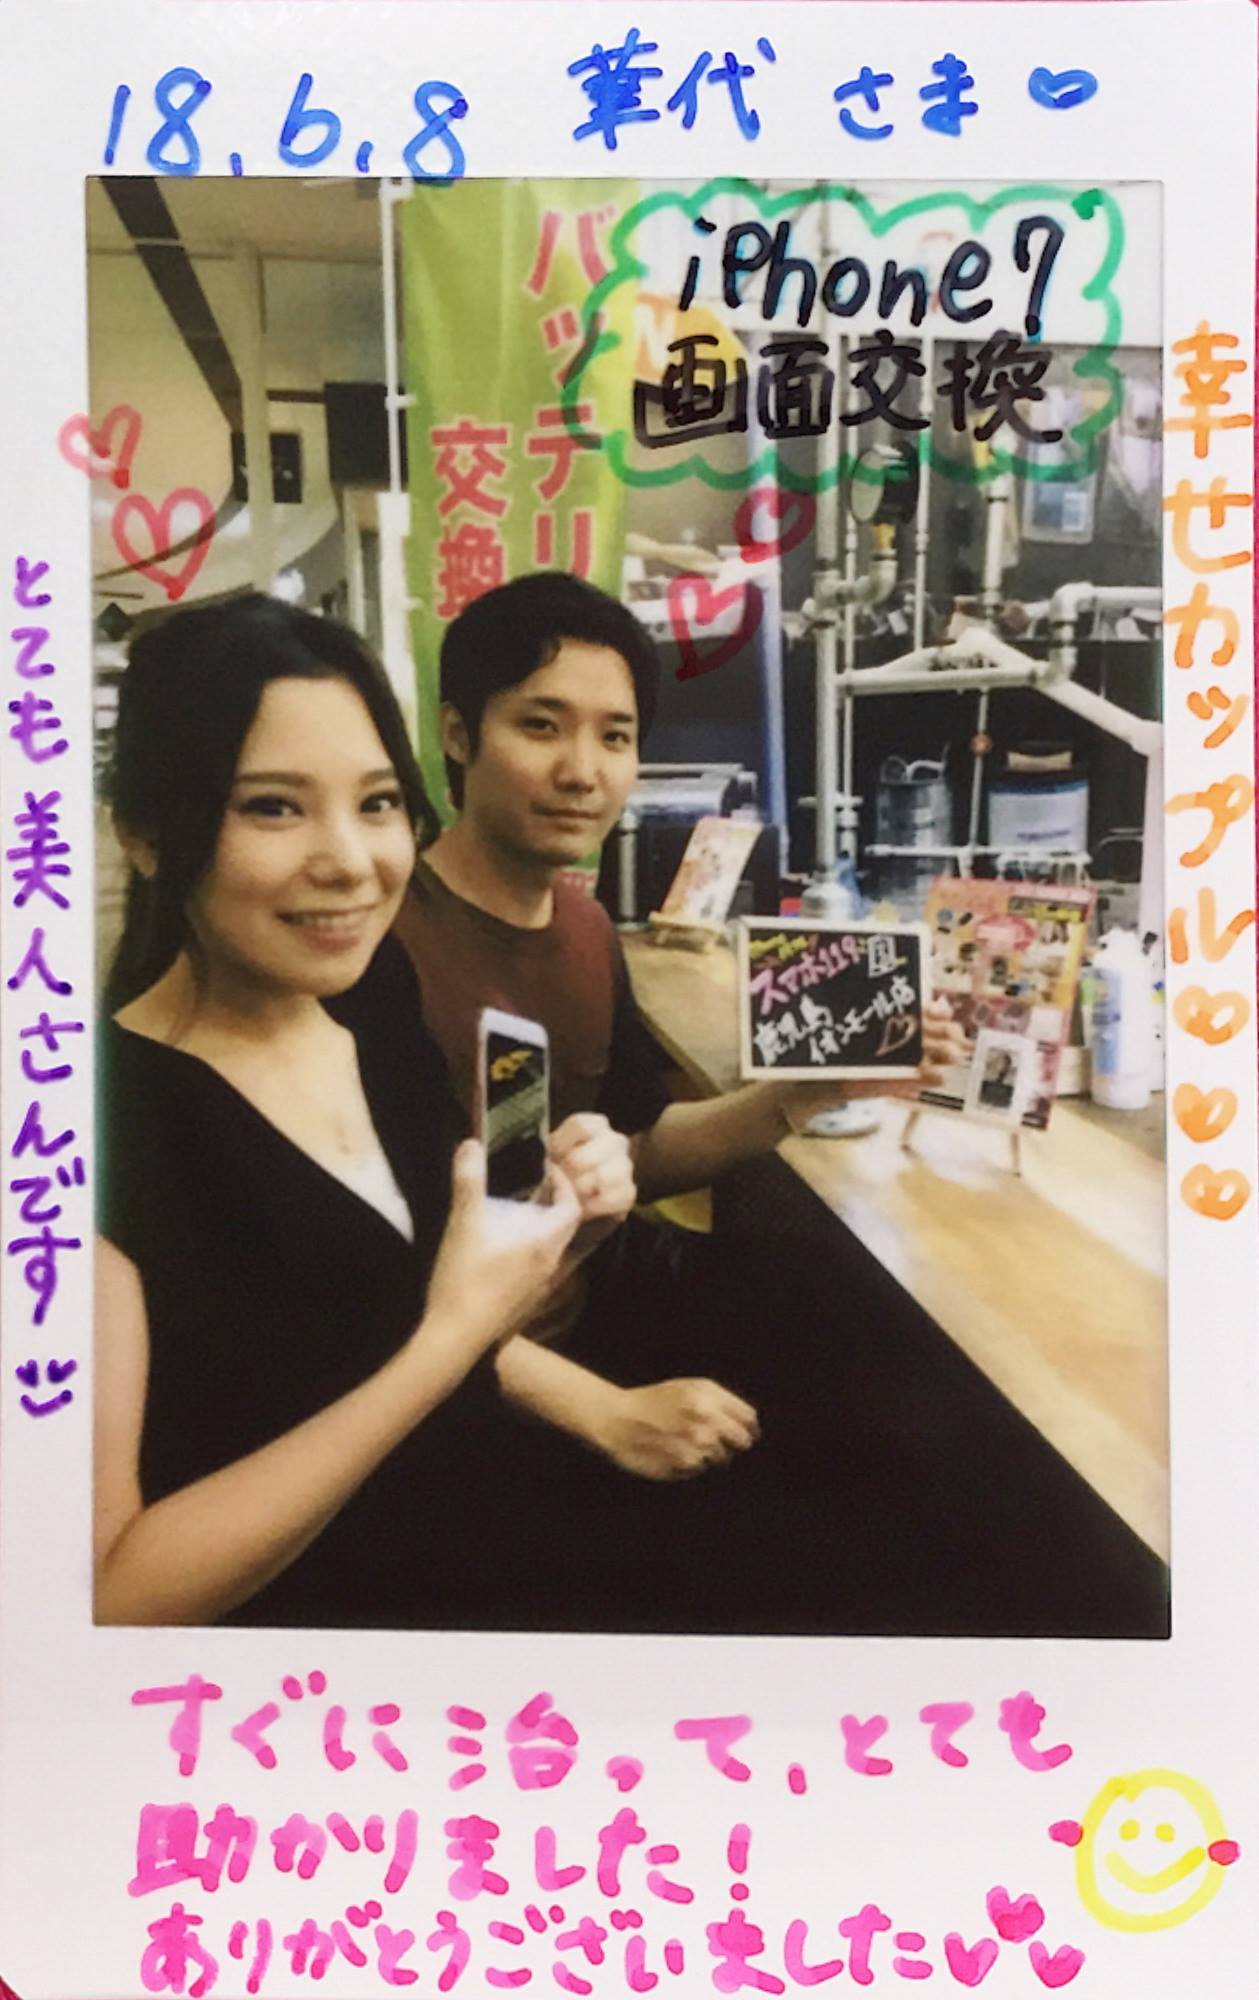 18.6.8 華代さま
iPhone7
画面交換
バッテリー
交換
幸せカップル
とても美人さんです
スマホ119
鹿児島
イオンモール店
すぐに治って、とても
助かりました！
ありがとうございました